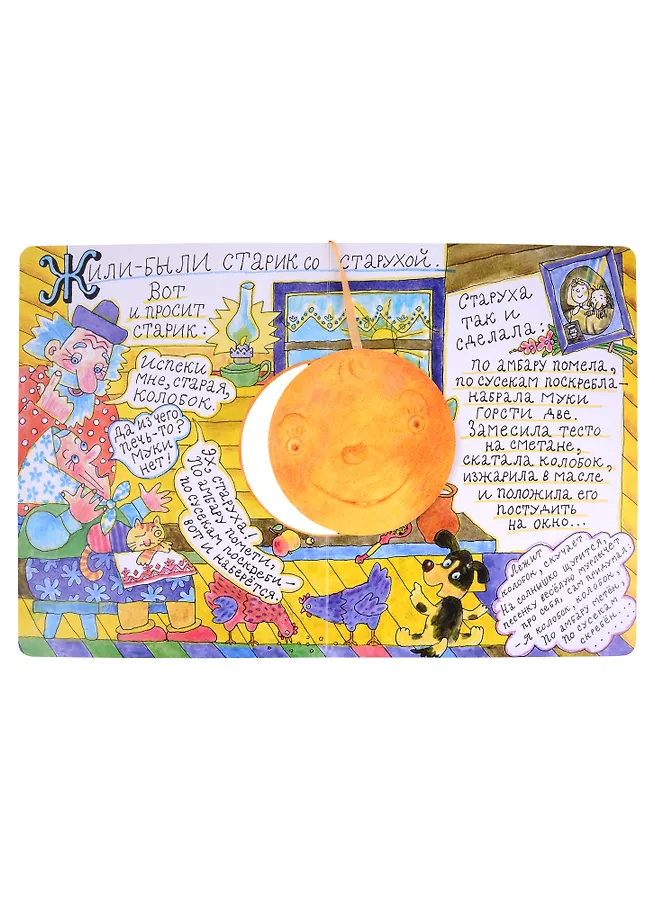 Жили-были старик со старухой.
Вот
и просит
старик:
Испеки
мне, старая,
колобок.
Да из чего
печь-то?
Муки
нет!
Эх, старуха!
По амбару помети,
по сусекам поскреби –
вот и наберётся.
Старуха
так и
сделала:
по амбару помела,
по сусекам поскребла –
набрала муки
горсти две.
Замесила тесто
на сметане,
скатала колобок,
изжарила в масле
и положила его
постудить
на окно...
Лежит
колобок, скучает.
На солнышко щурится,
песенку весёлую мурлычет
про себя, сам придумал:
– Я колобок, колобок,
По амбару метён,
По сусекам
скребён...